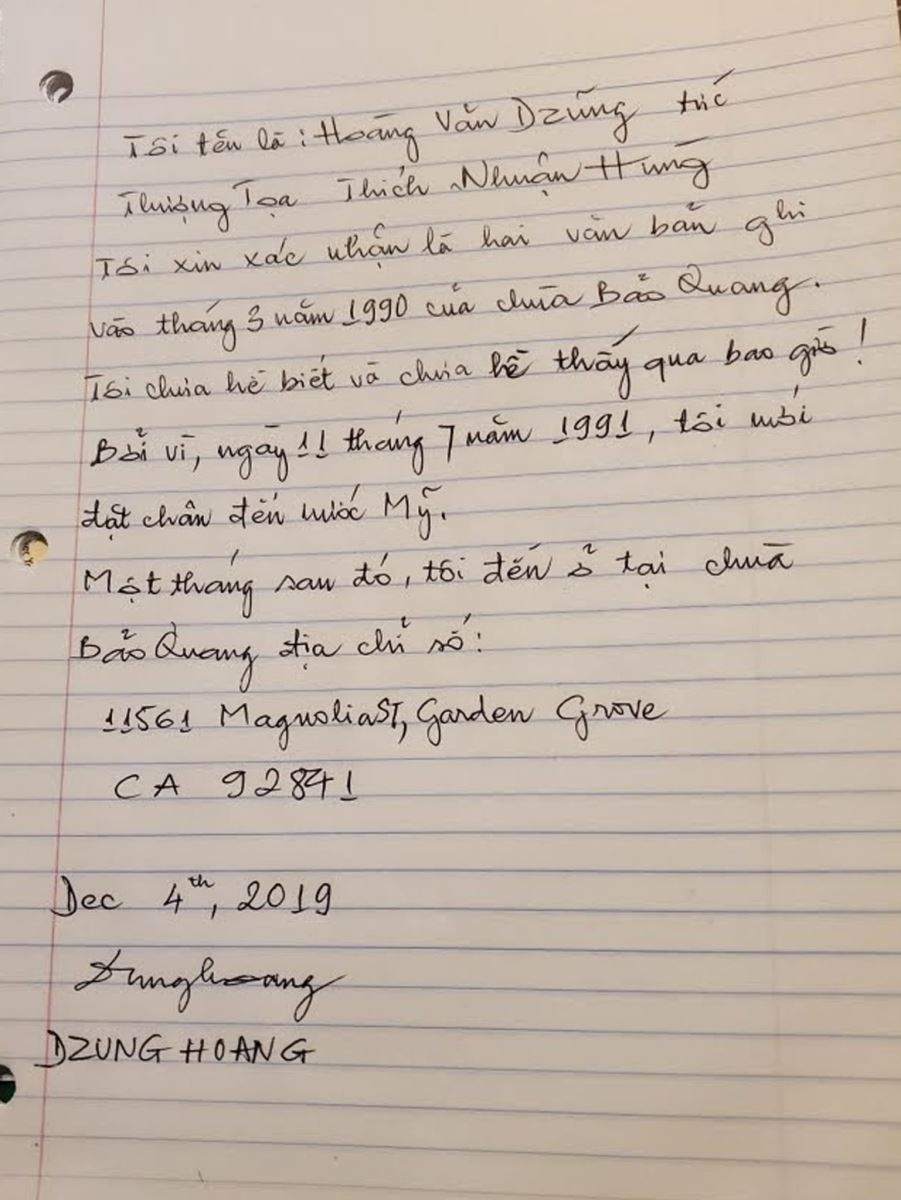 Tôi tên là : Hoàng Văn Dzũng tức
Thượng Tọa Thích Nhuận Hùng
Tôi xin xác nhận là hai văn bản ghi
vào tháng 3 năm 1990 của chùa Bảo Quang.
Tôi chưa hề biết và chưa hề thấy qua bao giờ !
Bởi vì, ngày 11 tháng 7 năm 1991, tôi mới
đặt chân đến nước Mỹ.
Một tháng sau đó, tôi đến ở tại chùa
Bảo Quang địa chỉ số :
11561 Magnolia ST, Garden Grove
CA 92841
Dec 4th, 2019
Dunghoang
DZUNG HOANG